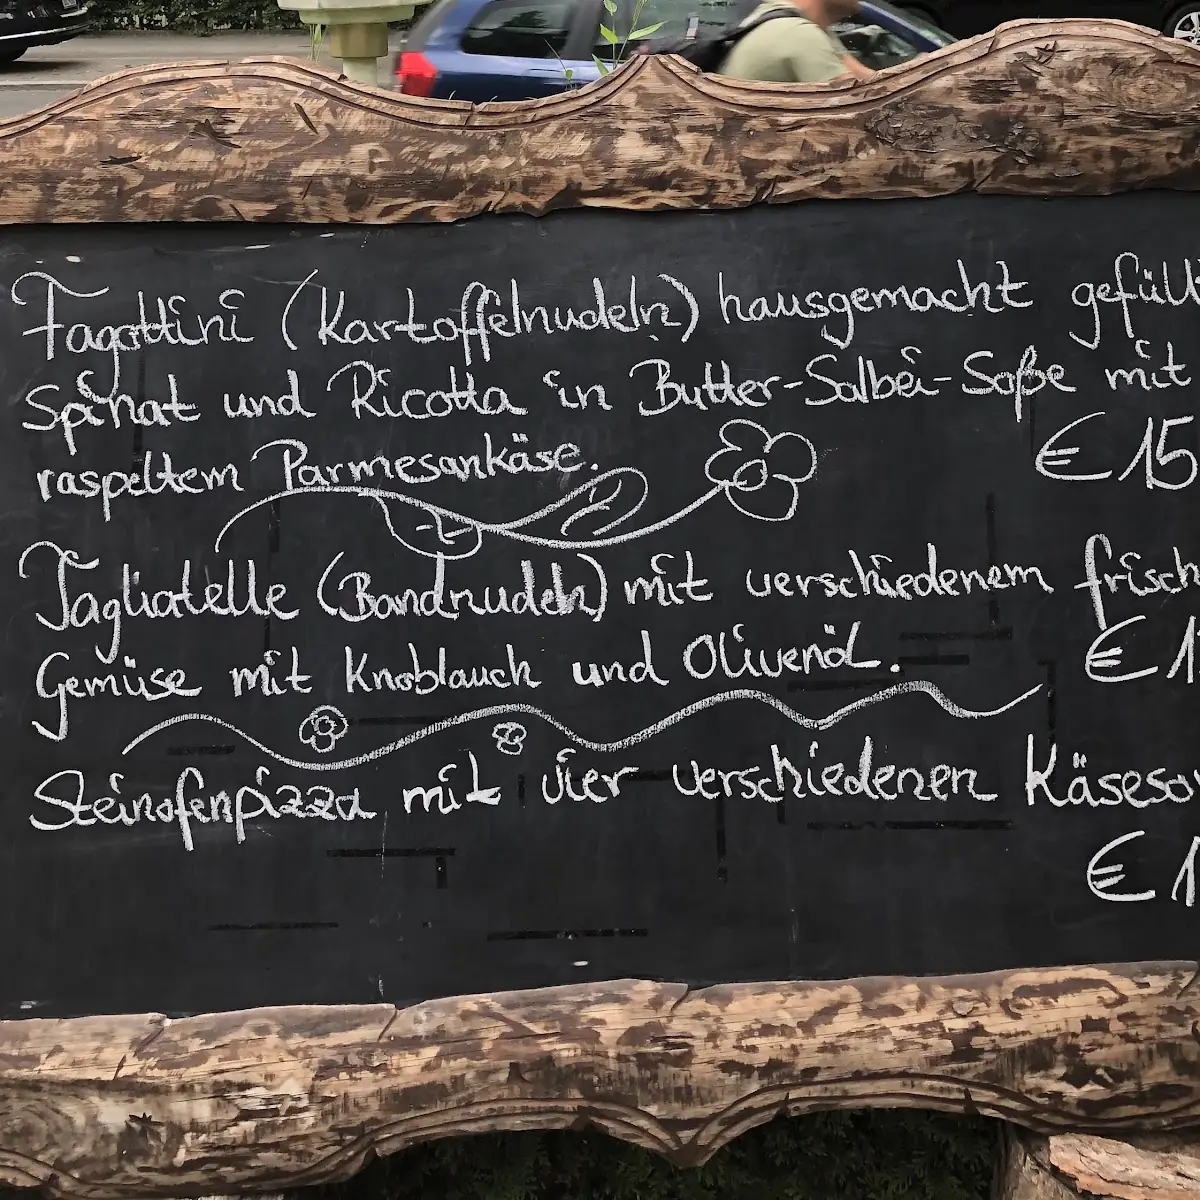 Fagottini (Kartoffelnudeln) hausgemacht gefüll
Spinat und Ricotta in Butter-Salbei-Soße mit
raspeltem Parmesankäse.
€ 15
Tagliatelle (Bandnudeln) mit verschiedenem frisch
Gemüse mit Knoblauch und Olivenöl.
€ 1
Steinofenpizza mit vier verschiedenen Käseso
€ 1